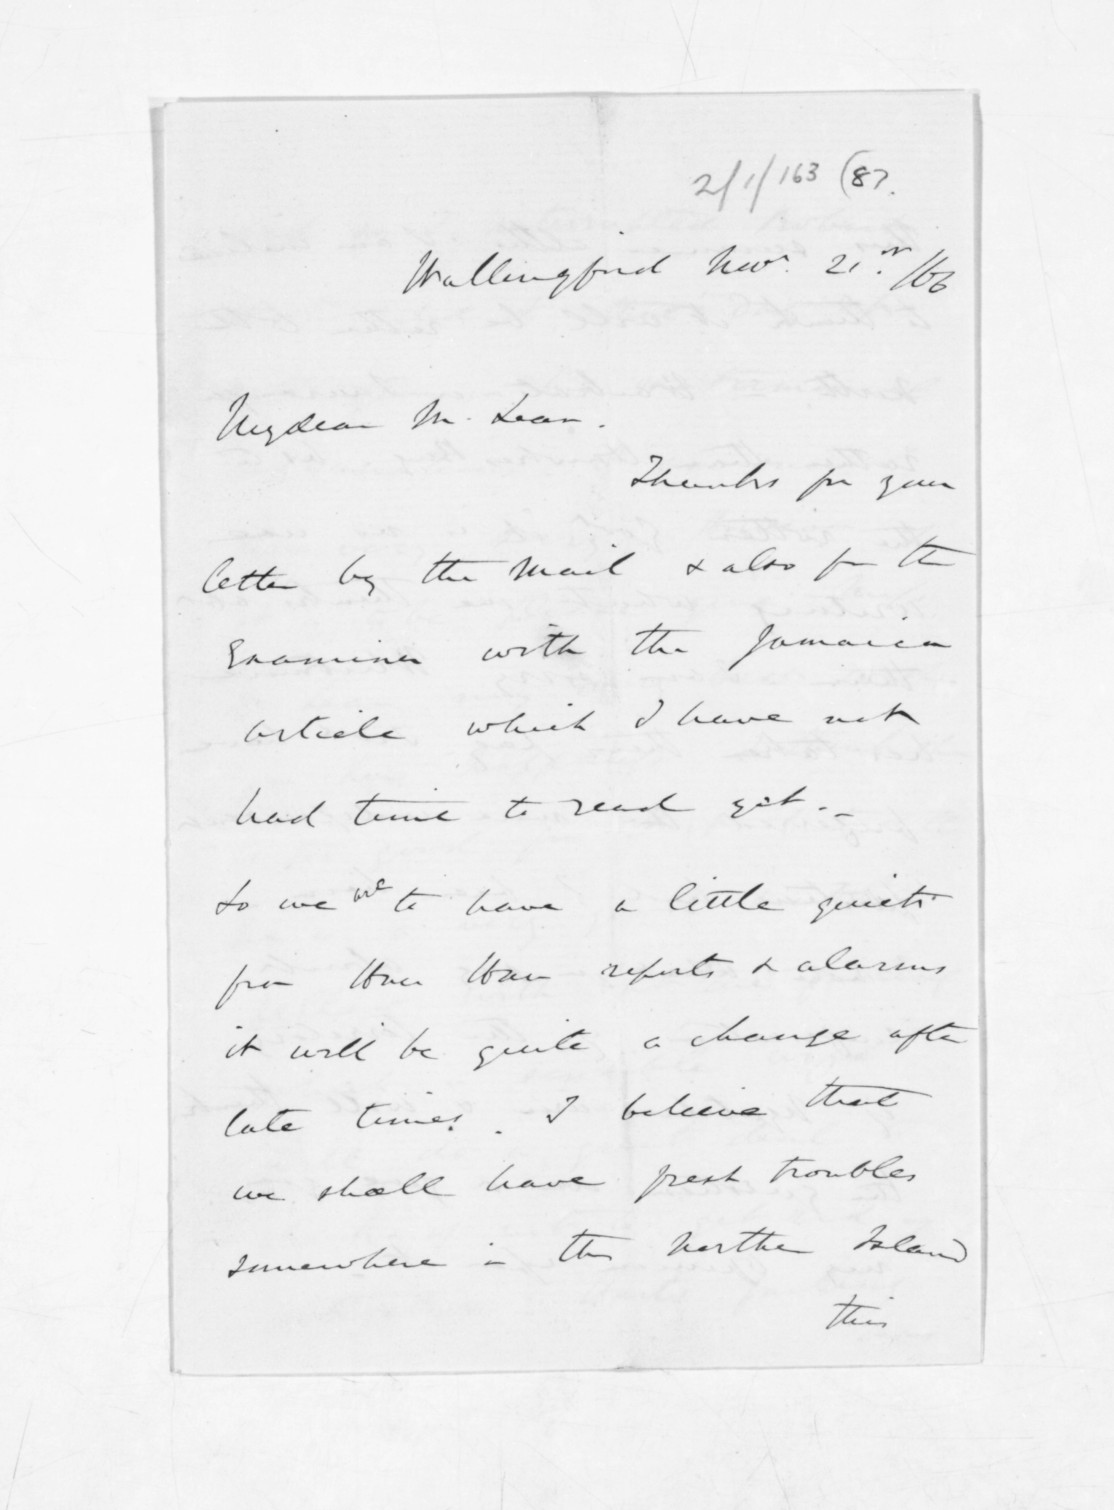 2/1/163 (87.
Wallingford Novr. 21st /66
My dear Mc Lean.
Thanks for your
letter by the Mail & also for the
Examiner with the Jamaica
article which I have not
had time to read yet. _
So we are to have a little quiet
from Hau Hau reports & alarms
it will be quite a change after
late times. I believe that
we shall have fresh troubles
somewhere in this Northern Island
this